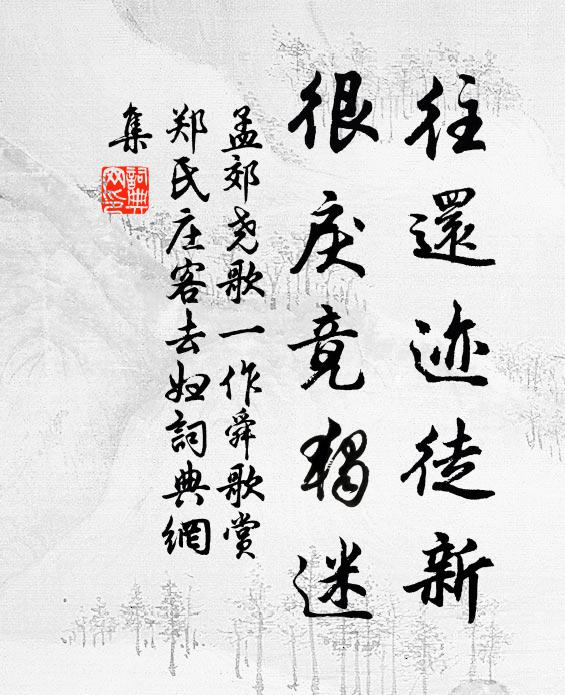 往還迹徒新
很戾竟獨迷
孟郊尧歌一作舜歌赏
郑氏庄客去妇詞典網
集
詞典
网印